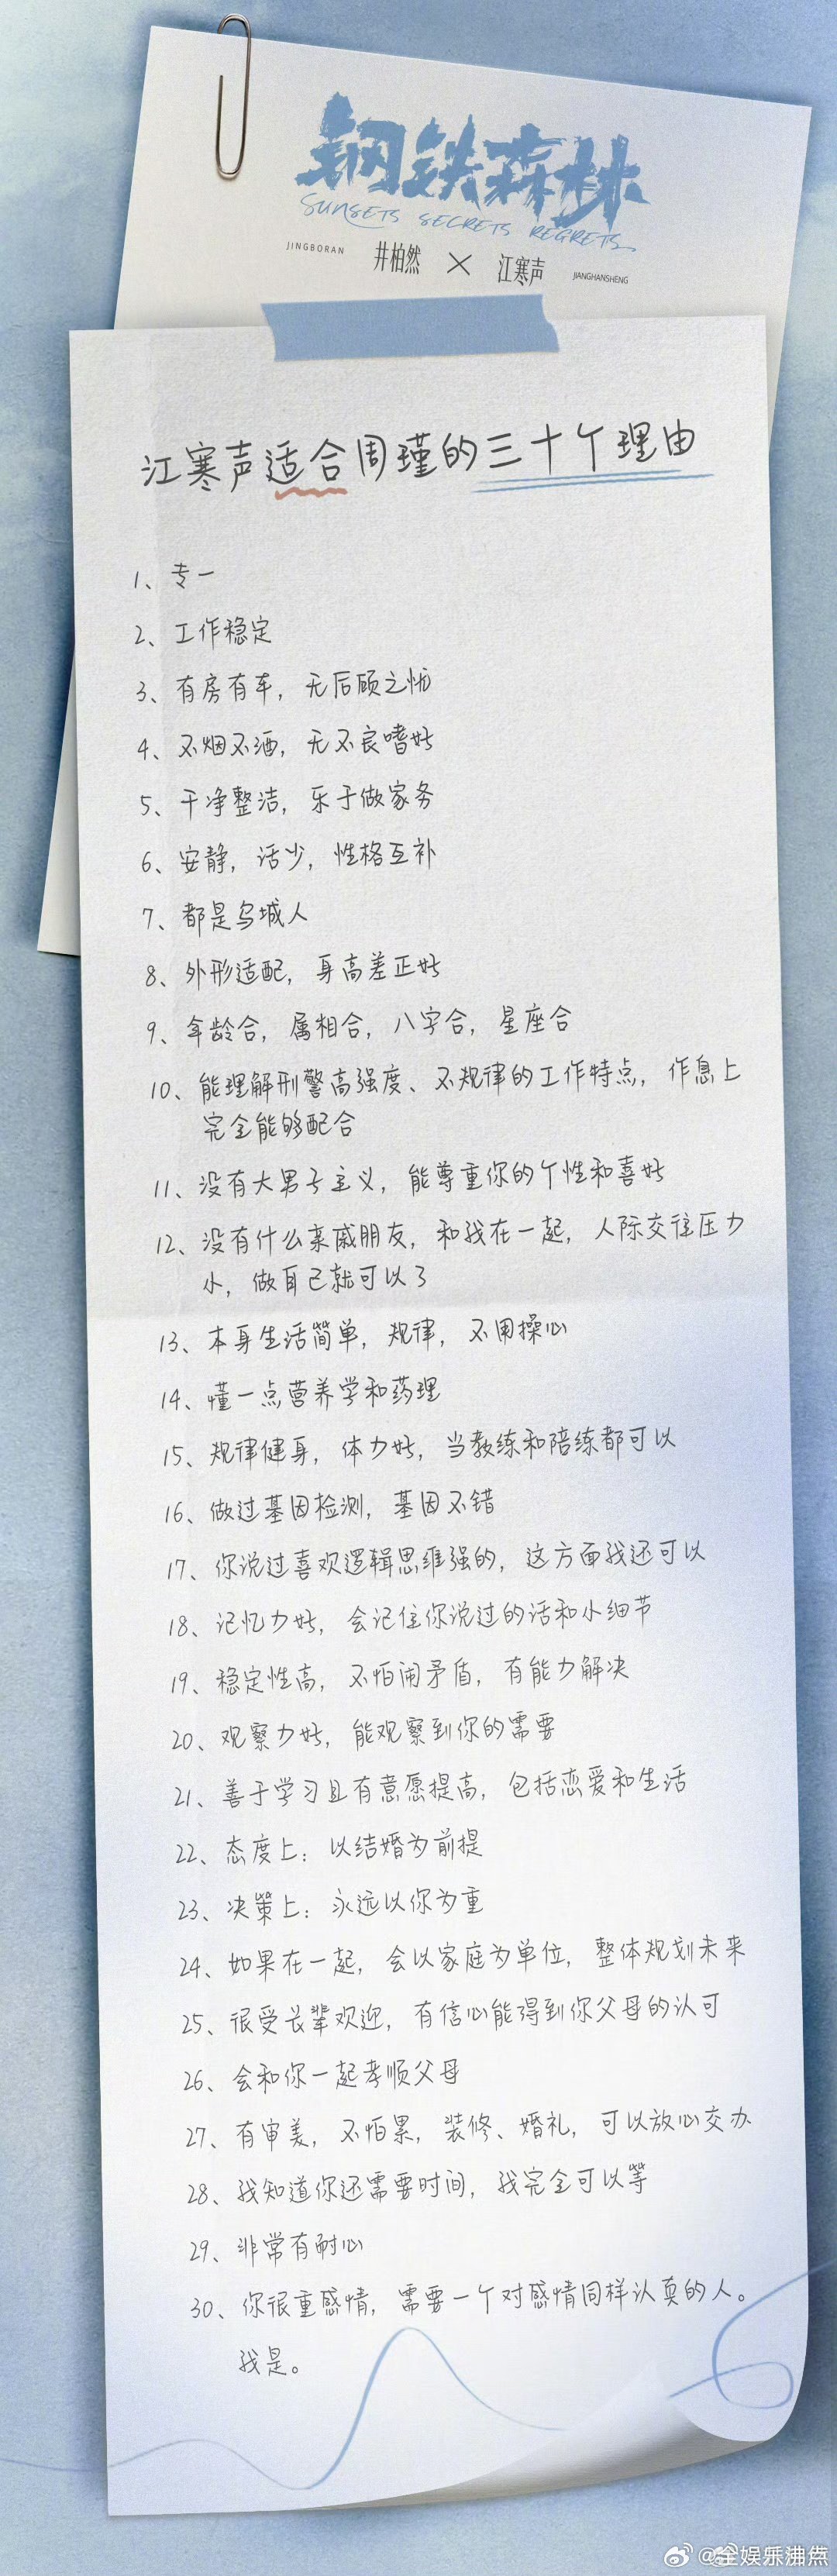 钢铁森林
SUNSETS SECRETS REGRETS
JINGBORAN 井柏然 × 江寒声 JIANGHANSHENG
江寒声适合周瑾的三十个理由
1、专一
2、工作稳定
3、有房有车，无后顾之忧
4、不烟不酒，无不良嗜好
5、干净整洁，乐于做家务
6、安静，话少，性格互补
7、都是乌城人
8、外形适配，身高差正好
9、年龄合，属相合，八字合，星座合
10、能理解刑警高强度、不规律的工作特点，作息上
完全能够配合
11、没有大男子主义，能尊重你的个性和喜好
12、没有什么亲戚朋友，和我在一起，人际交往压力
小，做自己就可以了
13、本身生活简单，规律，不用操心
14、懂一点营养学和药理
15、规律健身，体力好，当教练和陪练都可以
16、做过基因检测，基因不错
17、你说过喜欢逻辑思维强的，这方面我还可以
18、记忆力好，会记住你说过的话和小细节
19、稳定性高，不怕闹矛盾，有能力解决
20、观察力好，能观察到你的需要
21、善于学习且有意愿提高，包括恋爱和生活
22、态度上：以结婚为前提
23、决策上：永远以你为重
24、如果在一起，会以家庭为单位，整体规划未来
25、很受长辈欢迎，有信心能得到你父母的认可
26、会和你一起孝顺父母
27、有审美，不怕累，装修、婚礼，可以放心交办
28、我知道你还需要时间，我完全可以等
29、非常有耐心
30、你很重感情，需要一个对感情同样认真的人。
我是。
@全娱乐沸点